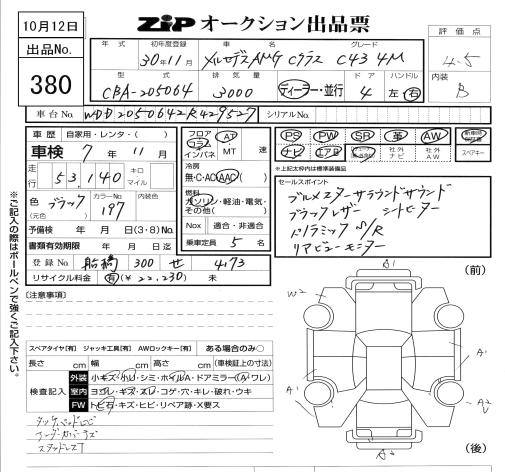 10月12日
出品No.
380
ZIP オークション出品票
評価点
4.5
内装
B
年式 初年度登録 車名 グレード
30年11月 メルセデスAMG Cクラス C43 4M
型式 排気量 ドア ハンドル
CBA-205064 3000 ディーラー・並行 4 左・右
車台No. WDD2050642R429527 シリアルNo.
車歴 自家用・レンタ・( )
車検 7年 11月
走行 53,140 キロ マイル
色 ブラック (元色) カラーNo. 197 内装色
予備検 年 月 日(3・8)No.
書類有効期限 年 月 日迄
登録No. 船橋 300 せ 4173
リサイクル料金 有(¥22,230) 未
フロア コラム インパネ AT MT 速
冷房
無・C・AC・AAC( )
燃料
ガソリン・軽油・電気・その他( )
Nox 適合・非適合
乗車定員 5 名
PS PW SR 革 AW 新車時保証書
ナビ エアB 社外ナビ 社外AW スペアキー
※上記太枠内は標準装備品
セールスポイント
ブルメスターサラウンドサウンド
ブラックレザー シートヒーター
パノラミックS/R
リアビューモニター
※ご記入の際はボールペンで強くご記入下さい。
[注意事項]
スペアタイヤ[有] ジャッキ工具[有] AWロックキー[有] ある場合のみ○
長さ cm 幅 cm 高さ cm (車検証上の寸法)
検査記入
外装 小キズ・小凹・シミ・ホイルA・ドアミラー(A・ワレ)
室内 ヨゴレ・キズ・スレ・コゲ・穴・キレ・破れ・ウキ
FW トビ石・キズ・ヒビ・リペア跡・X要ス
スタッドレス
(前)
A1
W2
A1
A1
A2
(後)